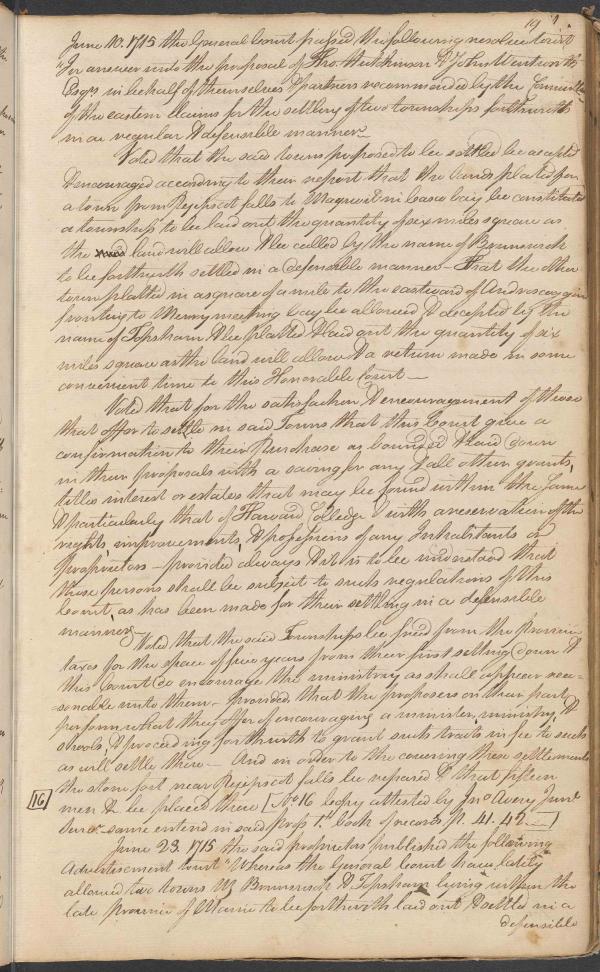 19
June 10. 1715 the General Court passed the following resolve to wit
"For answer unto the proposal of Tho. Hutchinson & John Wentworth
Esqrs in behalf of themselves & partners recommended by the Committee
of the eastern Claims for the settling of two townships forthwith
in a regular & defensible manner
Voted that the said towns proposed to be settled be accepted
& encouraged according to their report that the lands platted for
a town from Pejepscot falls to Maquoit in Casco bay be constituted
a township to be laid out the quantity of six miles square as
the land will allow & be called by the name of Brunswick
to be forthwith settled in a defensible manner - That the other
town platted in a square of a mile to the eastward of Androscoggin
fronting to Merrymeeting bay be allowed & accepted by the
name of Topsham & be platted & laid out the quantity of six
miles square as the land will allow & a return made in some
convenient time to this Honorable Court -
Voted that for the satisfaction & encouragement of those
that offer to settle in said Towns that this Court give a
confirmation to their Purchase as bounded & laid down
in their proposals with a saving for any & all other grants,
titles interest or estates that may be found within the same
& particularly that of Harvard Colledge & with a reservation of the
rights, improvements, & possessions of any Inhabitants or
proprietors - provided always & it is to be understood that
those persons shall be subject to such regulations of this
Court, as has been made for their settling in a defensible
manner -
Voted that the said Townships be freed from the Province
taxes for the space of five years from their first settling down &
this Court do encourage the ministry as shall appear rea-
-sonable unto them - provided, that the proposers on their part
perform what they offer of encouraging a minister, ministry, &
schools, & proceeding forthwith to grant such tracts in fee to such
as will settle there - And in order to the covering these settlements
the stone fort near Pejepscot falls be repaired & that fifteen
16
men be placed there [No 16 Copy attested by Jno Avery Junr
Secy - same entered in said props 1st book of records p. 41. 42. -]
June 23. 1715 the said proprietors published the following
Advertisement to wit "Whereas the General Court have lately
allowed two towns Brunswick & Topsham lying within the
late Province of Maine to be forthwith laid out & settled in a
defensible